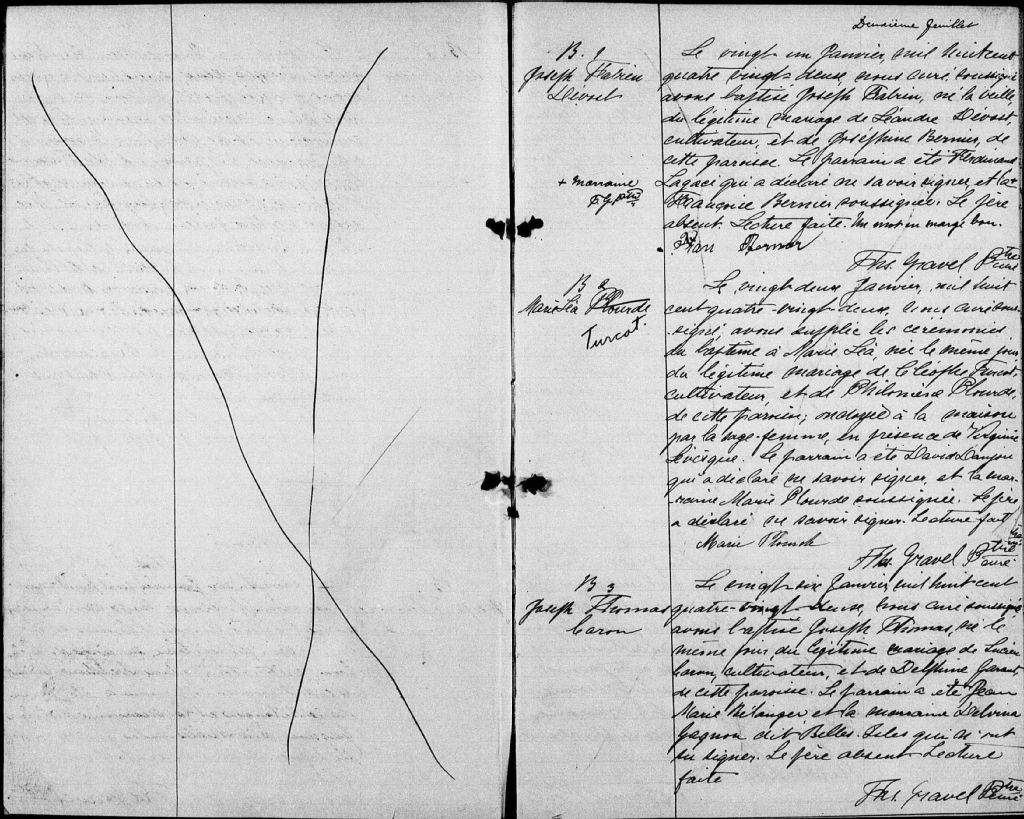 Deuxième feuillet
B. 1
Joseph Fabien
Devost
Le vingt un Janvier, mil huit cent
quatre vingt deux nous curé soussigné
avons baptisé Joseph Fabien, né la veille,
du légitime mariage de Léandre Devost
cultivateur, et de Joséphine Bernier, de
cette paroisse. Le parrain a été Ferdinand
+ marraine
Lagacé qui a déclaré ne savoir signer, et la +
Françoise Bernier soussignée. Le père
absent. Lecture faite. Un mot en marge bon.
Fran Bernier
Ths. Gravel Ptre
Curé
B 2
Marie Léa Plourde
Turcot.
Le vingt deux Janvier, mil huit
cent quatre-vingt-deux, nous curé sous-
signé, avons supplié les cérémonies
du baptême à Marie Léa, née le même jour
du légitime mariage de Cléophe Turcot
cultivateur, et de Philomène Plourde,
de cette paroisse; ondoyée à la maison
par la sage-femme, en présence de Virginie
Lévesque. Le parrain a été David Danjou
qui a déclaré ne savoir signer, et la mar-
raine Marie Plourde soussignée. Le père
a déclaré ne savoir signer. Lecture fait
Marie Plourde
Ths. Gravel Ptre
Curé
B 3
Joseph Thomas
Caron
Le vingt six Janvier, mil huit cent
quatre-vingt-deux, nous curé soussigné
avons baptisé Joseph Thomas, né le
même jour du légitime mariage de Lucien
Caron, cultivateur, et de Delphine Garant,
de cette paroisse. Le parrain a été Jean
Marie Bélanger et la marraine Delvina
Gagnon dit Belles-Isles qui n'ont
su signer. Le père absent Lecture
faite
Ths. Gravel Ptre
Curé